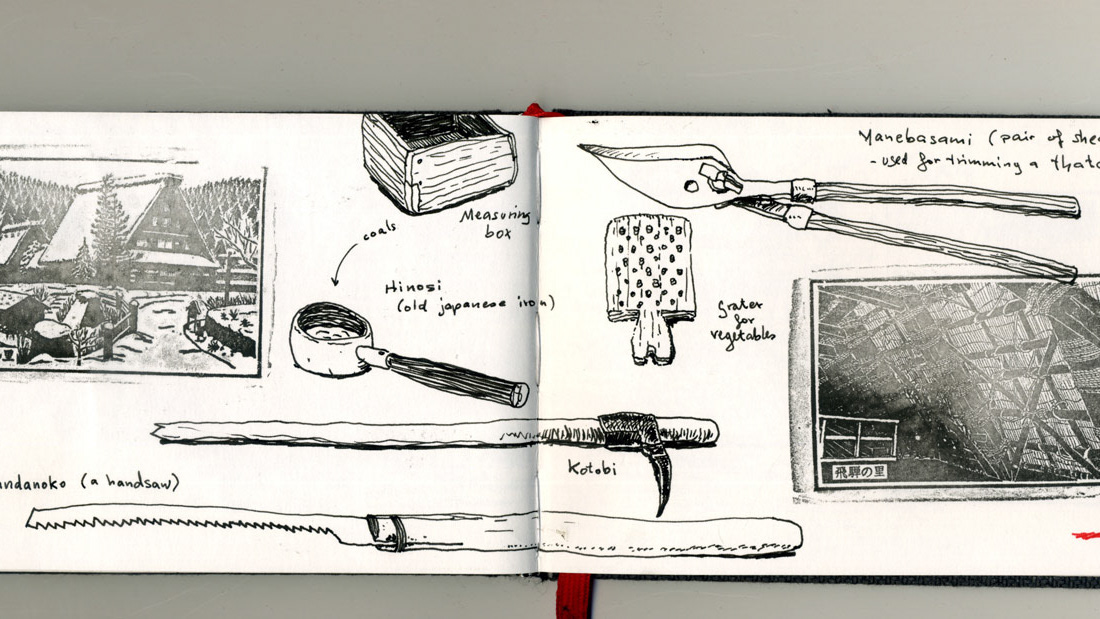 Measuring
box
coals
Hinosi
(old japanese iron)
ndanoko (a handsaw)
Yanebasami (pair of shea
- used for trimming a thatc
Grater
for
vegetables
Kotobi
飛騨の里